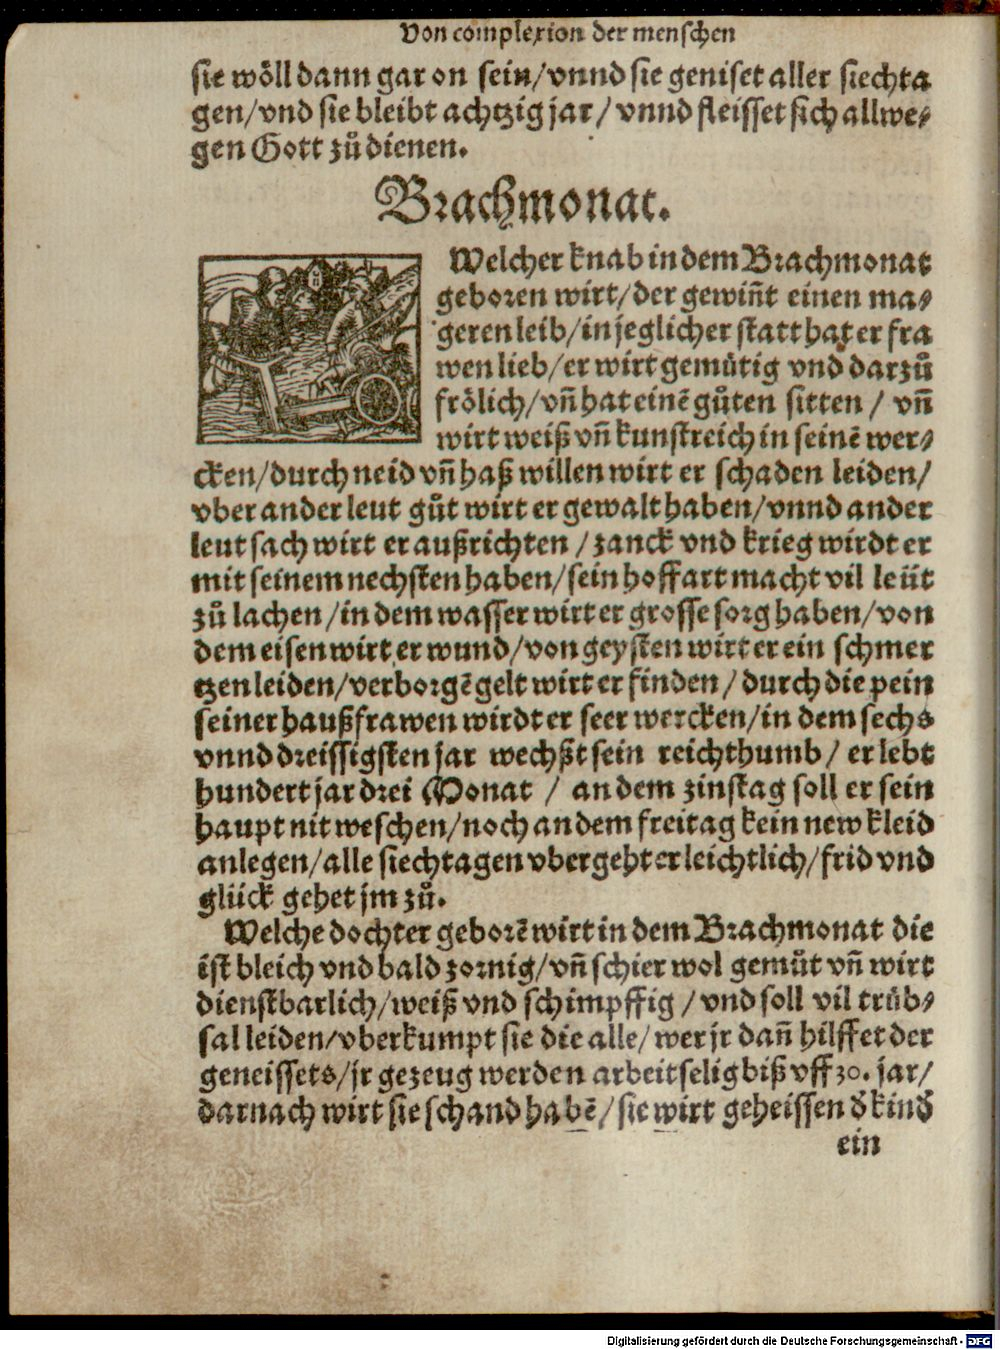 Von complexion der menschen
sie wöll dann gar on sein/vnnd sie geniset aller siechta
gen/vnd sie bleibt achtzig jar/vnnd fleisset sich allwe⸗
gen Gott zů dienen.
Brachmonat.
Welcher knab in dem Brachmonat
geboren wirt/der gewiñt einen ma⸗
geren leib/in jeglicher statt hat er fra
wen lieb/er wirt gemůtig vnd darzů
frölich/vñ hat einē gůten sitten/vñ
wirt weiß vñ kunstreich in seinē wer⸗
cken/durch neid vñ haß willen wirt er schaden leiden/
vber ander leut gůt wirt er gewalt haben/vnnd ander
leut sach wirt er außrichten/zanck vnd krieg wirdt er
mit seinem nechsten haben/sein hoffart macht vil leüt
zů lachen/in dem wasser wirt er grosse sorg haben/von
dem eisen wirt er wund/von geysten wirt er ein schmer
tzen leiden/verborgē gelt wirt er finden/durch die pein
seiner haußfrawen wirdt er seer wercken/in dem sechs
vnnd dreissigsten jar wechßt sein reichthumb/er lebt
hundert jar drei Monat/an dem zinstag soll er sein
haupt nit weschen/noch an dem freitag kein new kleid
anlegen/alle siechtagen vbergeht er leichtlich/frid vnd
glück gehet jm zů.
Welche dochter geborē wirt in dem Brachmonat die
ist bleich vnd bald zornig/vñ schier wol gemůt vñ wirt
dienstbarlich/weiß vnd schimpffig/vnd soll vil trůb⸗
sal leiden/vberkumpt sie die alle/wer jr dañ hilffet der
geneissets/jr gezeug werden arbeitselig biß vff 30. jar/
darnach wirt sie schand habē/sie wirt geheissen ď kinď
ein
Digitalisierung gefördert durch die Deutsche Forschungsgemeinschaft - DFG